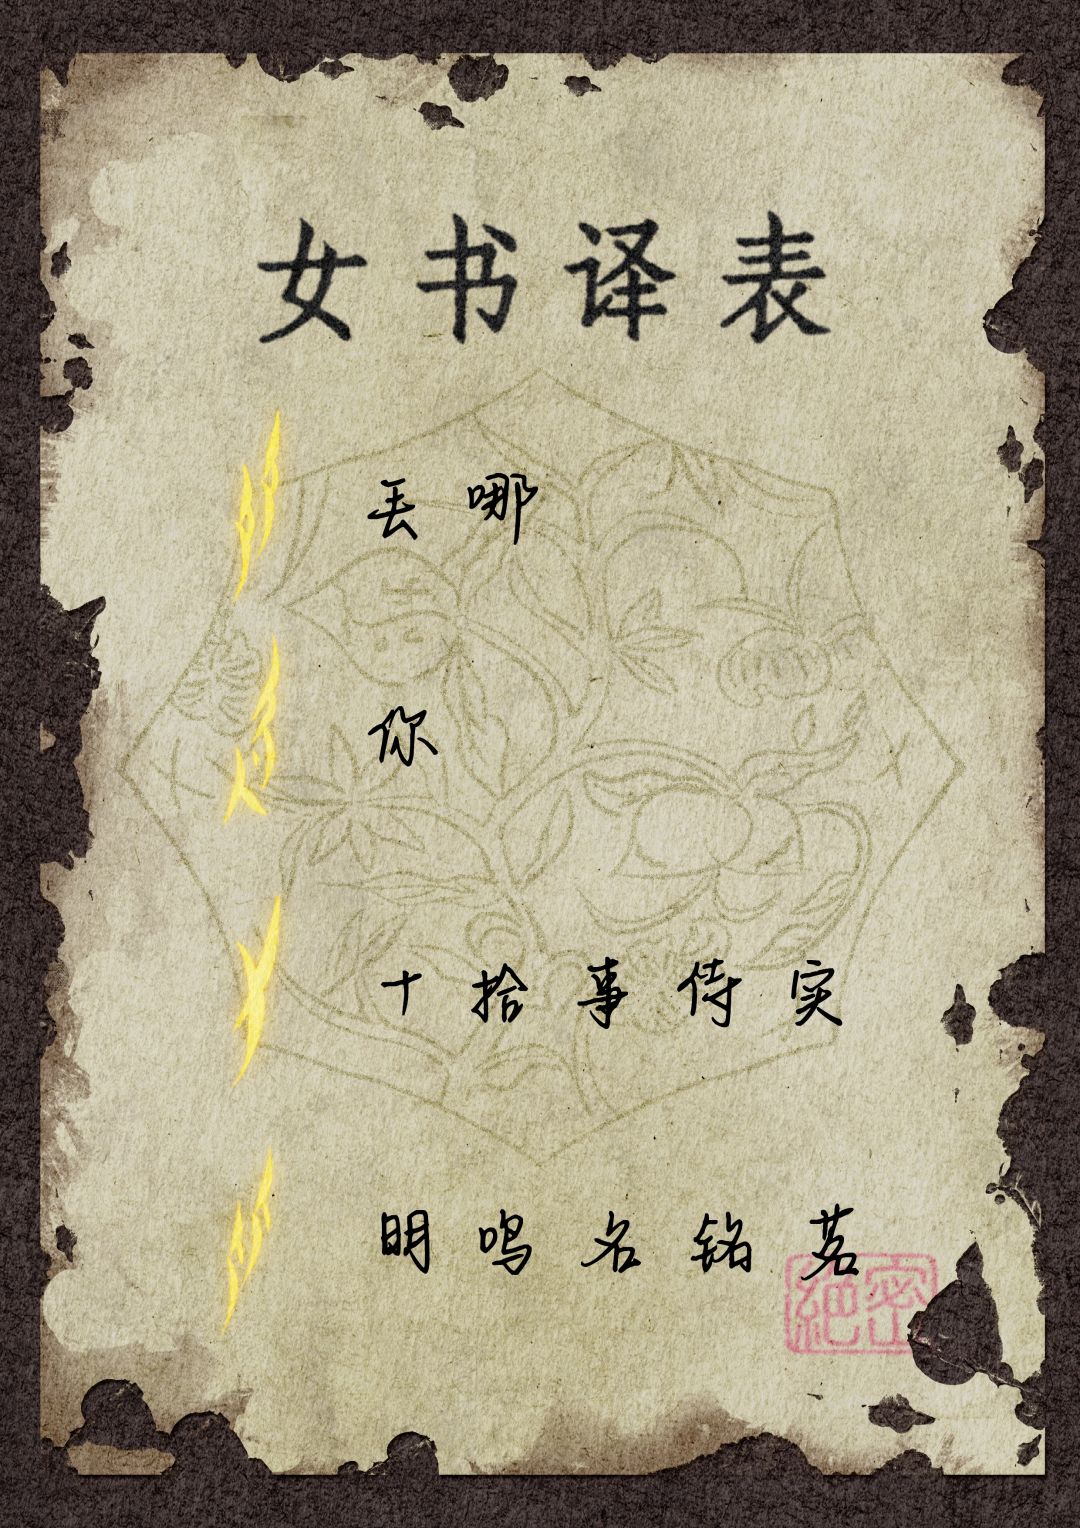 女书译表
丢 哪
你
十 拾 事 侍 实
明 鸣 名 铭 茗
絕密